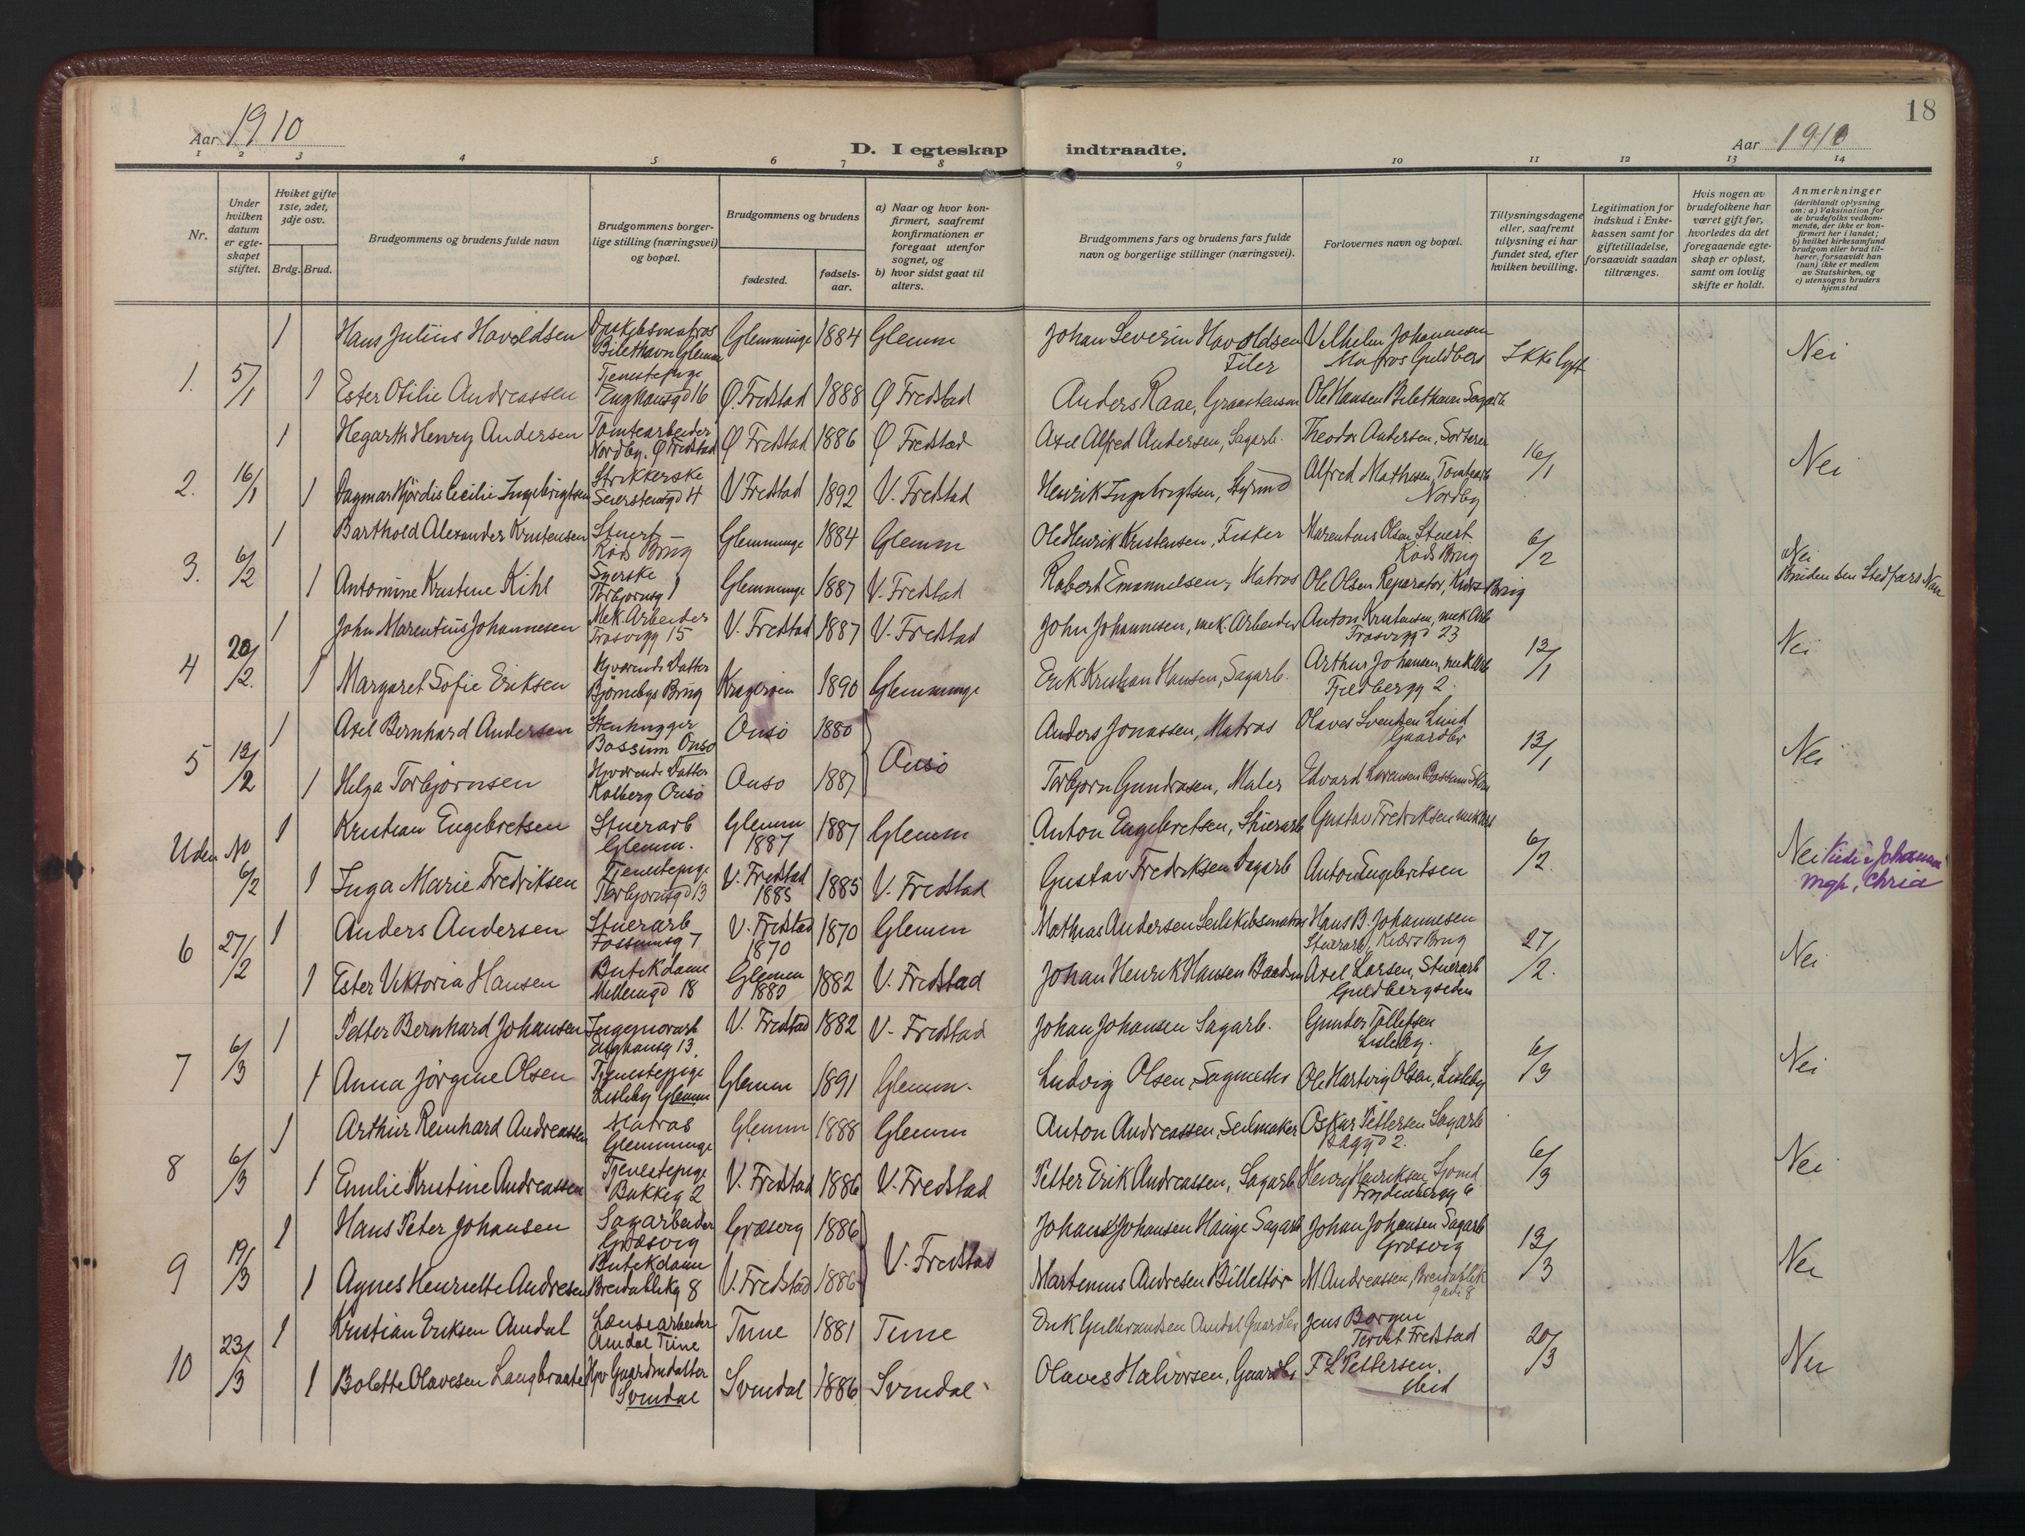 18
Aar 1910
D. I egteskap indtraadte.
Aar 1910
1 2 3 4 5 6 7 8 9 10 11 12 13 14
Nr.
Under hvilken datum er egteskapet stiftet.
Hviket gifte 1ste, 2det, 3dje osv.
Brdg. Brud.
Brudgommens og brudens fulde navn
Brudgommens borgerlige stilling (næringsvei) og bopæl.
Brudgommens og brudens
fødested.
fødselsaar.
a) Naar og hvor konfirmert, saafremt konfirmationen er foregaat utenfor sognet, og
b) hvor sidst gaat til alters.
Brudgommens fars og brudens fars fulde navn og borgerlige stillinger (næringsvei).
Forlovernes navn og bopæl.
Tillysningsdagene eller, saafremt tillysning ei har fundet sted, efter hvilken bevilling.
Legitimation for indskud i Enkekassen samt for giftetilladelse, forsaavidt saadan tiltrænges.
Hvis nogen av brudefolkene har været gift før, hvorledes da det foregaaende egteskap er opløst, samt om lovlig skifte er holdt.
Anmerkninger (deriblandt oplysning om: a) Vaksination for de brudefolks vedkommende, der ikke er konfirmert her i landet; b) hvilket kirkesamfund brudgom eller brud tilhører, forsaavidt han (hun) ikke er medlem av Statskirken, og c) utensogns bruders hjemsted
1. 5/1 1 Hans Julius Havoldsen Glemminge 1884 Glemm Johan Severin Havoldsen Filer Vilhelm Johannesen Matros Guldberg Ikke lyst Nei
1 Ester Otilie Andreassen Tjenestepige Enghausgd 16 Ø. Fredstad 1888 Ø Fredstad Anders Raae, Ole Hansen
2. 16/1 1 Hegarth Henry Andersen Tomtearbeider Nordby. Ø Fredstad Ø Fredstad 1886 Ø Fredstad Axel Alfred Andersen, Sagarb. Theodor Andersen, Sorterer 16/1 Nei
1 Dagmar Hjørdis Cecilie Ingebrigtsen Strikkerske Seierstensgd 4 V Fredstad 1892 V. Fredstad Henrik Ingebrigtsen, Styrmd Alfred Mathisen, Tomtearb Nordby
3. 6/2 1 Barthold Alexander Kristensen Stuerb Kiøs Brug Glemminge 1884 Glemm Ole Henrik Kristensen, Fisker Marentius Olsen Stuerb. 6/2 Nei
1 Antomine Kristine Kihl Syerske Torbjørnsg 1 Glemminge 1887 V. Fredstad Robert Emanuelsen, Matros Ole Olsen Reparatør, Brug Brudens Stedfars Navn
4 20/2. 1 John Marentius Johannesen Mek. Arbeider Trosvigg 15 V. Fredstad 1887 V. Fredstad John Johannesen, mek. Arbeider Anton Kristensen, mek Arb Trosviggd 23 13/1 Nei
1 Margaret Sofie Eriksen Hjværende Datter Bjørnebys Brug Kragerøen 1890 Glemminge Erik Kristian Hansen, Sagarb. Arthur Johansen, mek Arb Fjeldbergg 2.
5 13/2 1 Axel Bernhard Andersen Stenhugger Bossum Onsø Onsø 1880 Onsø Anders Jonassen, Matros Olaves Svendsen Lund Gaardbr 13/1 Nei
1 Helga Torbjørnsen Hjværende Datter Kolberg Onsø Onsø 1887 Torbjørn Gundersen, Maler Edvard Lorensen
Uden No 6/2 1 Kristian Engebretsen Stuerarb Glemm. Glemm 1887 1887 Glemm Anton Engebretsen, Stuerarb Gustav Fredriksen mek Arb 6/2. Nei
1 Inga Marie Fredriksen Tjenestepige Torbjørnsgd 13 V. Fredstad 1885 1885 V. Fredstad Gustav Fredriksen Sagarb Anton Engebretsen
Viede i Johannes mgh, Chria
6 27/2 1 Anders Andersen Stuerarb Fossumsg 7 V. Fredstad 1870 1870 Glemm Mathias Andersen Seilskibsmatros Hans B. Johannesen Stuerarb, Kiærs Brug 27/2. Nei
1 Ester Viktoria Hansen Butikdame Møllemgd 18 Glemm 1880 1882 V. Fredstad Johan Henrik Hansen Axel Larsen, Stuerarb Guldbergseden
7 6/3 1 Petter Bernhard Johansen Enghausg 13. V. Fredstad 1882 V. Fredstad Johan Johansen Sagarb. Gunder Tollefsen Lisleby. 6/3 Nei
1 Anna Jørgine Olsen Tjenestepige Lisleby Glemm Glemm 1891 Glemm. Ludvig Olsen, Sagmester Ole Hartvig Olsen, Lisleby
8 6/3 1 Arthur Reinhard Andreassen Matros Glemminge Glemm 1888 Glemm Anton Andreassen, Seilmaker Oskar Pettersen Sagarb Baggd 2. 6/3 Nei
1 Emilie Kristine Andreassen Tjenestepige Bakkeg 2 V. Fredstad 1886 V. Fredstad Petter Erik Andreassen, Sagarb Henry Henriksen Sjømd Frydenbergg 6
9 19/3 1 Hans Peter Johansen Sagarbeider Græsvig Græsvig 1886 V. Fredstad Johans Johansen Hauge Sagarb Johan Johansen Sagarb Græsvig 13/3 Nei
1 Agnes Henriette Andresen Butikdame Breidablikg 8 V. Fredstad 1886 Martenius Andresen Billettør M Andreassen, Breidablik gade 8
10 23/3 1 Kristian Eriksen Amdal Lænsearbeider Amdal Tune Tune 1881 Tune Erik Gulbrandsen Amdal Gaardbr Jens Borgen Torvet Fredstad 20/3 Nei
1 Bolette Olavesen Langbraate Hjv Gaardmdatter Svindal Svindal 1886 Svindal Olaves Halvorsen, Gaardbr F L Pettersen. ibid